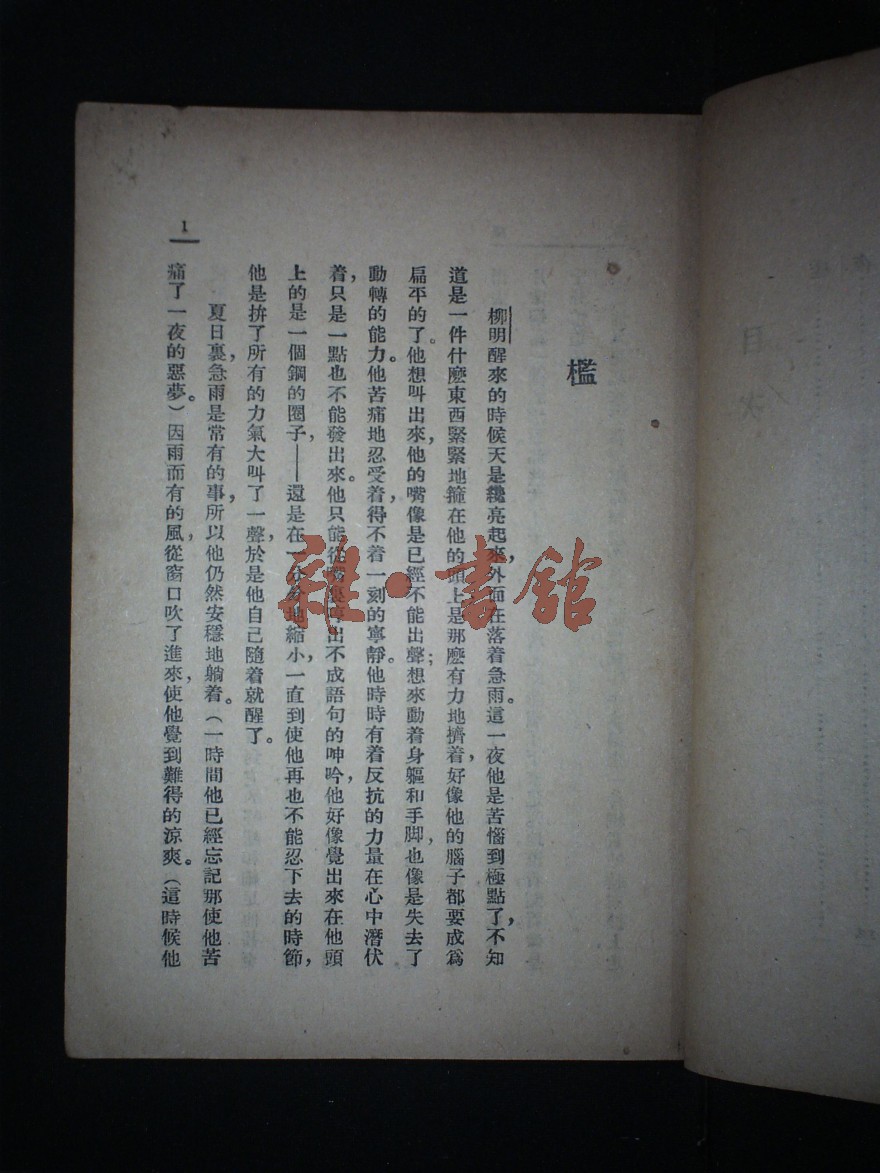 檻
柳明醒來的時候天是纔亮起來，外面在落着急雨。這一夜他是苦惱到極點了，不知
道是一件什麼東西緊緊地箍在他的頭上是那麼有力地擠着，好像他的腦子都要成為
扁平的了。他想叫出來，他的嘴像是已經不能出聲；想來動着身軀和手脚，也像是失去了
動轉的能力。他苦痛地忍受着，得不着一刻的寧靜。他時時有着反抗的力量在心中潛伏
着，只是一點也不能發出來。他只能從出不成語句的呻吟，他好像覺出來在他頭
上的是一個鋼的圈子，——還是在一分分地縮小，一直到使他再也不能忍下去的時節，
他是拚了所有的力氣大叫了一聲，於是他自己隨着就醒了。
夏日裏，急雨是常有的事，所以他仍然安穩地躺着。（一時間他已經忘記那使他苦
痛了一夜的惡夢。）因雨而有的風，從窗口吹了進來，使他覺到難得的涼爽。（這時候他
1
雜·書館